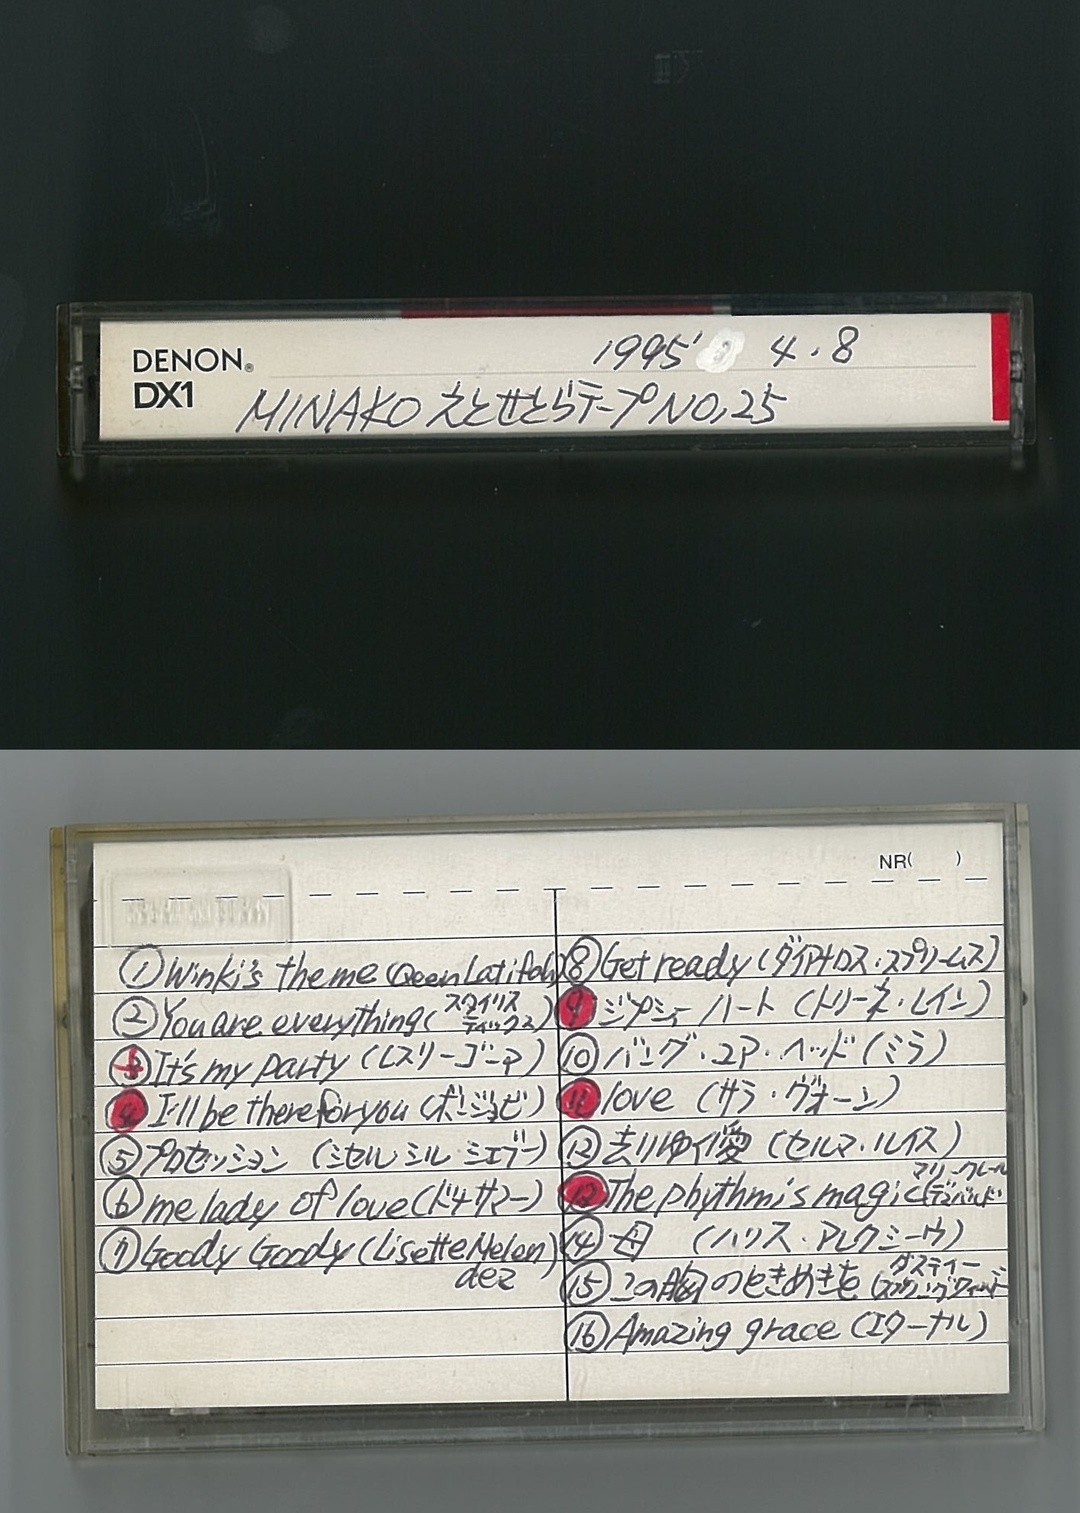 DENON®
DX1
1995' 4.8
MINAKO えとせとらテープNO,25
NR( )
①Winki's theme (Qeen Latifah)
②You are everything(スタイリスティックス)
③It's my party (レスリーゴーア)
④I'll be there for you (ボンジョビ)
⑤プロセッション (ミセル ミル ミエヴー)
⑥me lady of love(ドナサマー)
⑦Goody Goody (Lisette Melendez)
⑧Get ready (ダイアナロス・スプリームス)
⑨ジプシー ハート (トリーネ・レイン)
⑩バング・ユア・ヘッド (ミラ)
⑪love (サラ・ヴォーン)
⑫去りゆく愛 (セルマ・ルイス)
The phythmi's magic(マリークレール
⑭母 (ハリス・アレクシーウ)
⑮この胸のときめきを (ダスティースプリングフィールド
⑯Amazing grace (エターナル)